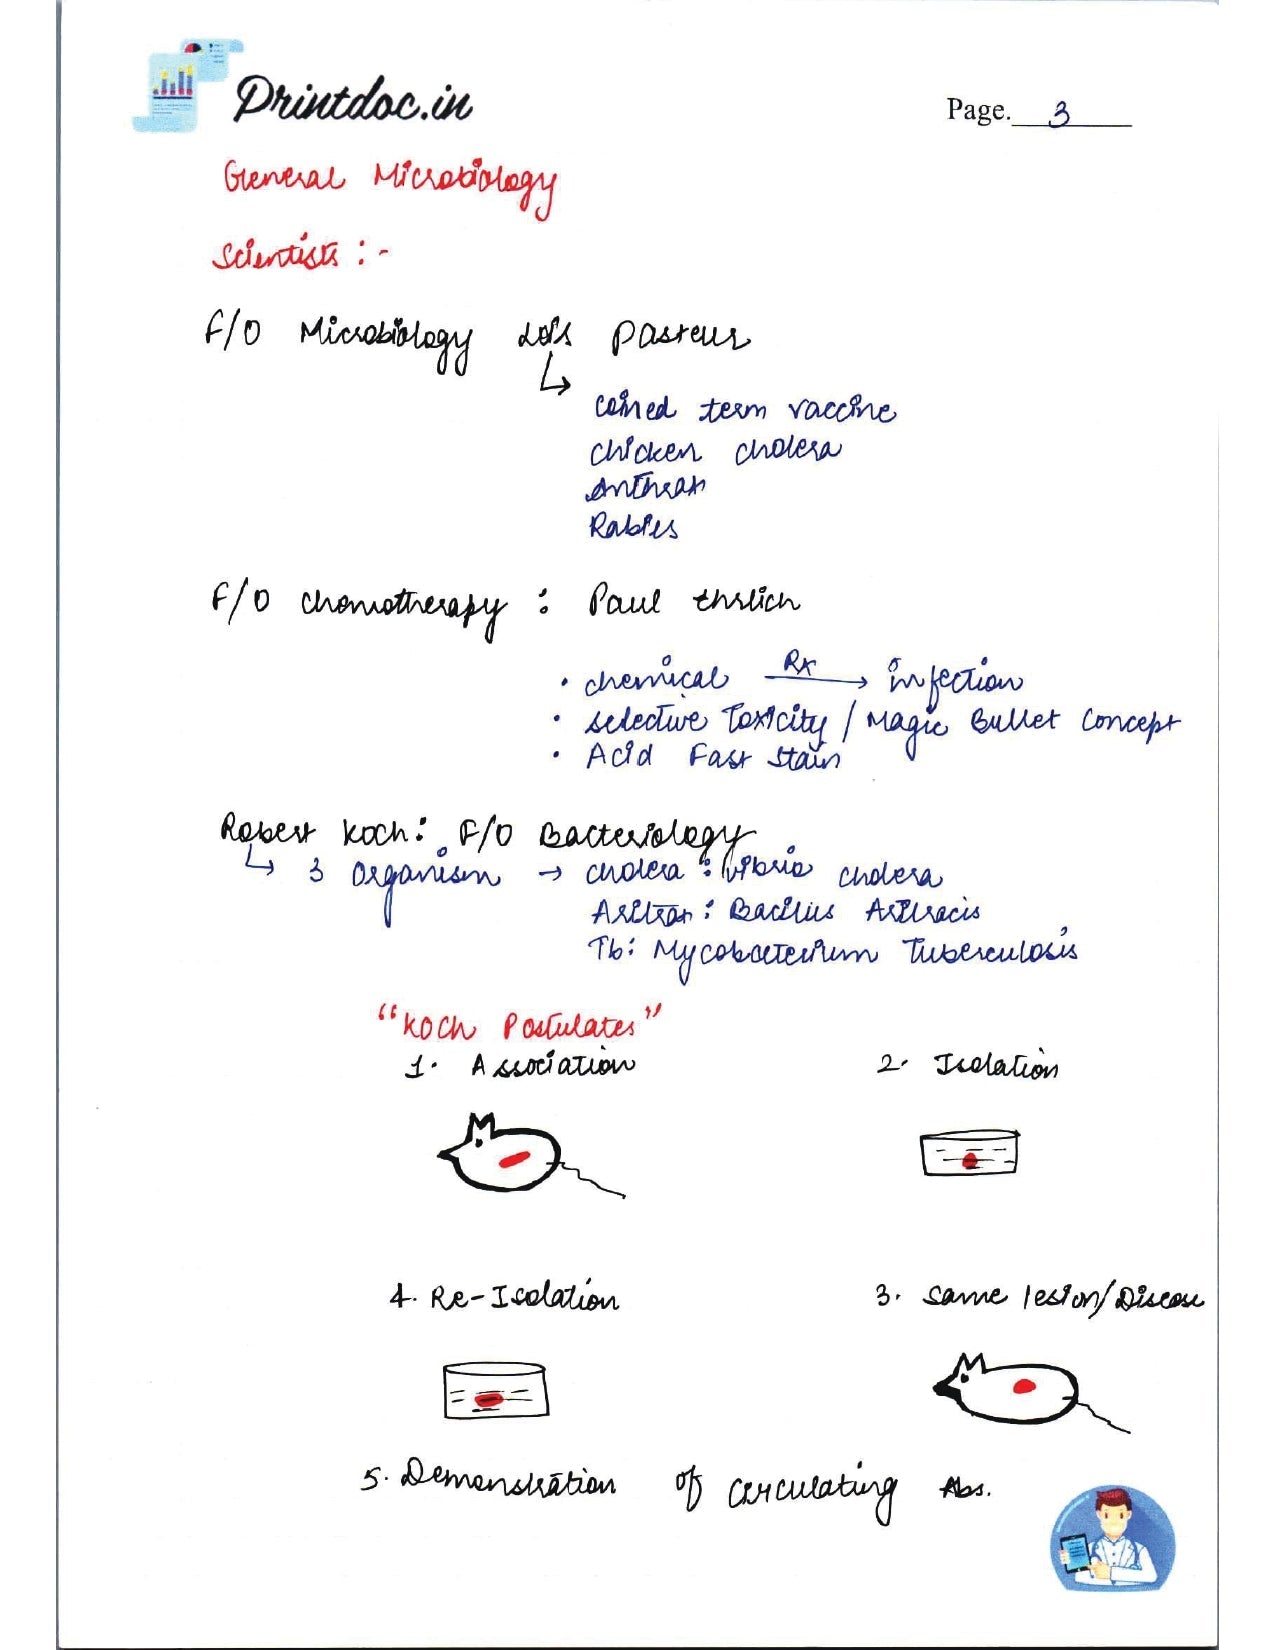 Printdoc.in
Page. 3
General Microbiology
Scientists :-
F/O Microbiology Lois Pasteur
↳
coined term vaccine
chicken cholera
Anthrax
Rabies
F/O chemotherapy : Paul Ehrlich
• chemical Rx → infection
• selective Toxicity / Magic Bullet Concept
• Acid Fast Stain
Robert Koch: F/O Bacteriology
↳ 3 organism → cholera : Vibrio cholera
: Bacillus
Tb: Mycobacterium Tuberculosis
"Koch Postulates"
1. Association
2. Isolation
4. Re-Isolation
3. same lesion/Disease
5. Demonstration of circulating Abs.